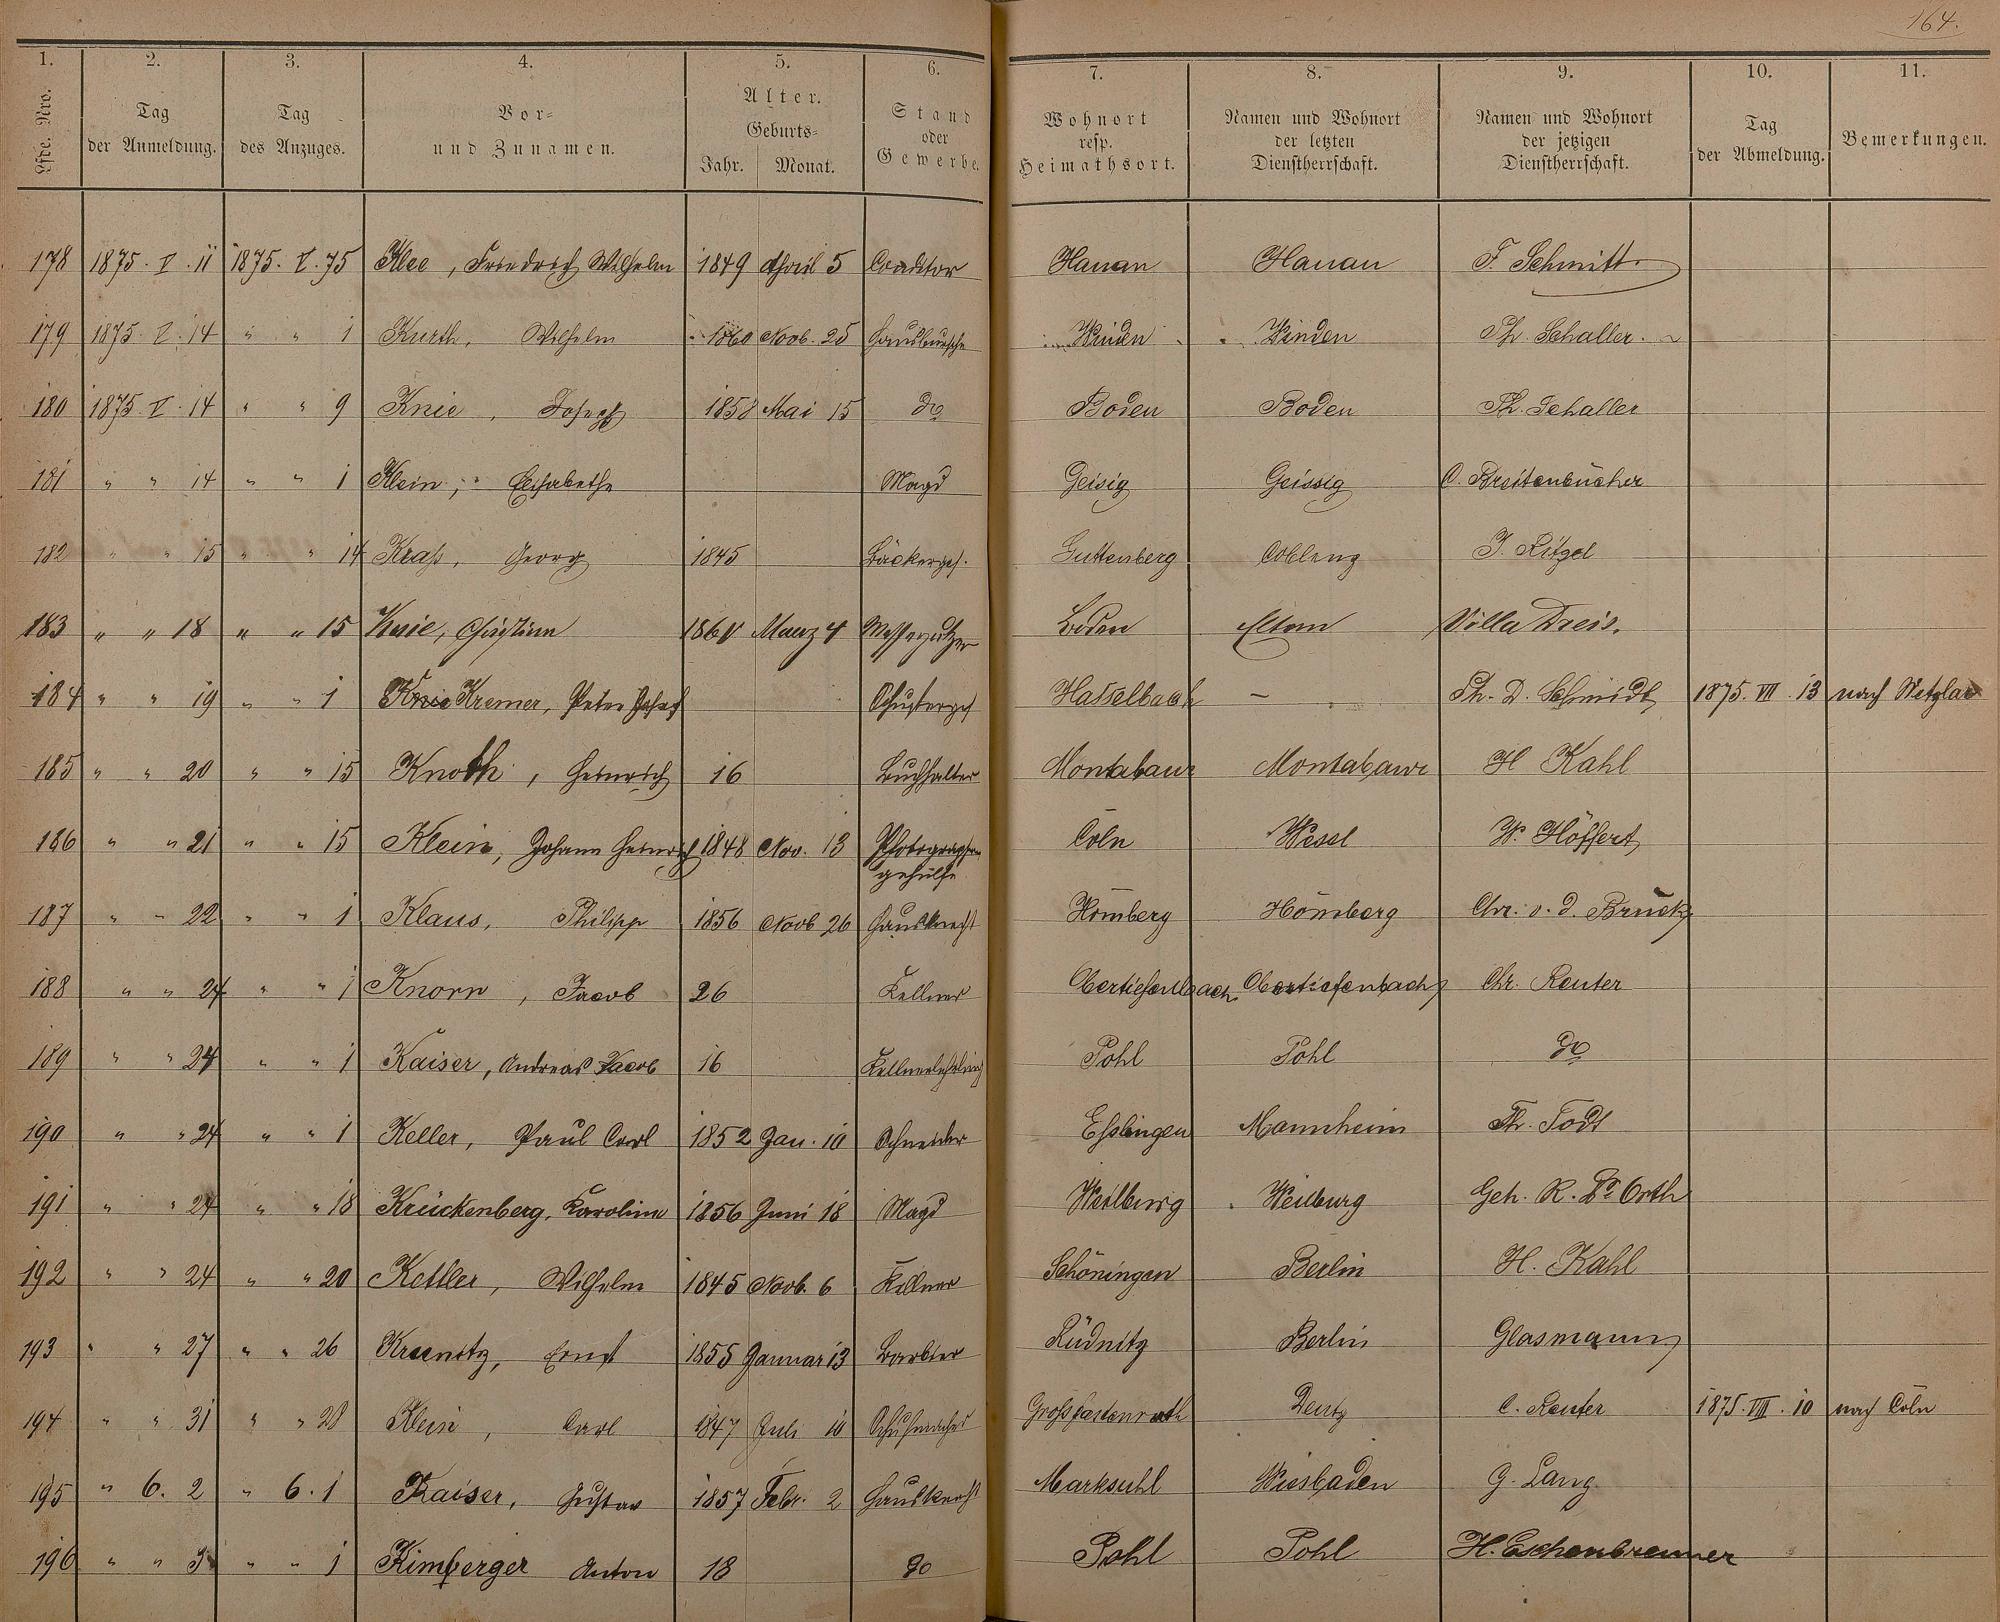 164.
1. 2. 3. 4. 5. 6. 7. 8. 9. 10. 11.
Lfde. Nro. Tag der Anmeldung. Tag des Anzuges. Vor- und Zunamen. Alter. Geburts- Jahr. Monat. Stand oder Gewerbe. Wohnort resp. Heimathsort. Namen und Wohnort der letzten Dienstherrschaft. Namen und Wohnort der jetzigen Dienstherrschaft. Tag der Abmeldung. Bemerkungen.
178 1875. V. 11 1875. V. 75 Klee, Friedrich Wilhelm 1849 April 5 Conditor Hanau Hanau F. Schmitt.
179 1875. V. 14 " " 1 Kurth, Wilhelm 1860 Novb. 25 Hausbursche Winden Winden Ph. Schaller.
180 1875. V. 14 " " 9 Knie, Joseph 1858 Mai 15 do Boden Boden Ph. Schaller
181 " " 14 " " 1 Klein, Elisabethe Magd Geisig Geissig C. Breitenbücher
182 " " 15 " " 14 Kraß, Georg 1845 Bäckerges. Guttenberg Coblenz J. Ritzel
183 " " 18 " " 15 Knie, Christian Maerz 4 Messerputzer Boden Villa Dreis.
184 " " 19 " " 1 Knie Kremer, Peter Josef Hasselbach — Ph. D. Schmidt 1875. VII. 13 nach Wetzlar
185 " " 20 " " 15 Knoth, Heinrich 16 Buchhalter Montabaur Montabaur H Kahl
186 " " 21 " " 15 Klein, Johann Heinrich 1848 Nov. 13 Photographen Cöln Wesel W. Höffert
gehülfe
187 " " 22 " " 1 Klaus, Philipp 1856 Novb 26 Hausknecht Hömberg Hömberg Chr. v. d. Brück
188 " " 24 " " 1 Knorn, Jacob 26 Kellner Obertiefenbach Obertiefenbach Chr. Reuter
189 " " 24 " " 1 Kaiser, Andreas Jacob 16 Kellnerlehrling Pohl Pohl do
190 " " 24 " " 1 Keller, Paul Carl 1852 Jan. 10 Schneider Eßlingen Mannheim Th. Todt
191 " " 24 " " 18 Krückenberg, Karoline 1856 Juni 18 Magd Weilburg Weilburg Geh. R. Dr Orth
192 " " 24 " " 20 Kettler, Wilhelm 1845 Novb. 6 Kellner Schöningen Berlin H. Kahl
193 " " 27 " " 26 Ernst 1855 Januar 13 Barbier Rüdnitz Berlin Glasmann
194 " " 31 " " 28 Klein, Carl 1847 Juli 10 Schuhmacher Deutz C. Reuter 1875. VIII. 10 nach Cöln
195 " 6. 2 " 6. 1 Kaiser, Gustav 1857 Febr. 2 Hausknecht Marksuhl Wiesbaden G. Lang
196 " " 3 " " 1 Kimberger Anton 18 do Pohl Pohl H. Eschenbrenner